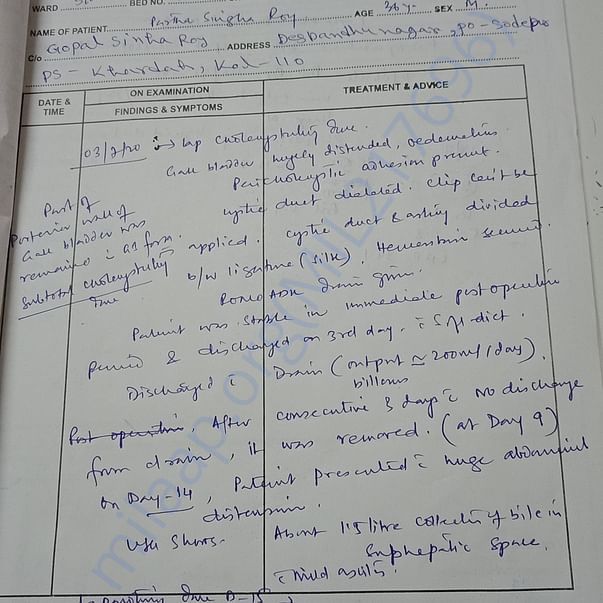 WARD BED NO.
NAME OF PATIENT Partha Singha Roy AGE 36y. SEX M.
C/o Gopal Sinha Roy ADDRESS Desbandhunagar, PO-Sodepur
PS - Khardah, Kol-110
DATE & TIME
ON EXAMINATION
FINDINGS & SYMPTOMS
TREATMENT & ADVICE
03/2/20 → Lap cholecystectomy done.
Gall bladder hugely distended, oedematous
Pericholecystic adhesion present.
cystic duct dialated. clip can't be
applied. cystic duct & artery divided
b/w ligature (silk). Hemostasis secured.
Part of
Posterior wall of
Gall bladder was
remained
Subtotal cholecystectomy
done
ROMO ADK Drain given.
Patient was stable in immediate post operative
period & discharged on 3rd day. c̄ S/N-diet.
Discharged c̄ Drain (output ≃ 200ml/day).
billous
Post operative. After consecutive 3 days c̄ No discharge
from drain, it was removed. (at Day 9)
On Day-14, Patient presented c̄ huge abdominal
distension.
USG Shows- About 1.5 litre collection of bile in
Subhepatic Space.
c̄ mild ascitis.
done D-15
milaap.org